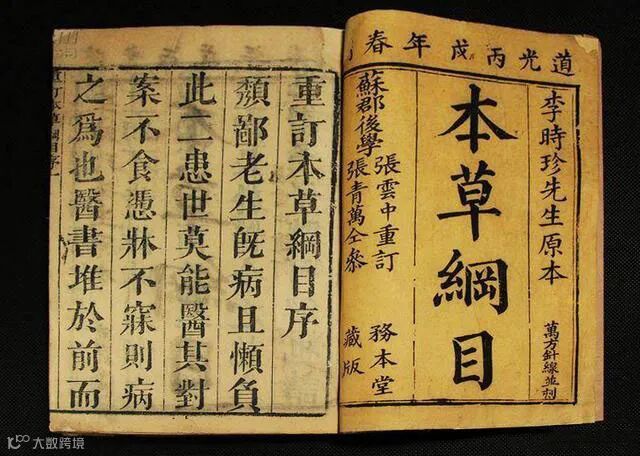 道光丙戌年春
李時珍先生原本
萬方針線並刻
本草綱目
蘇郡後學
張雲中重訂
張青萬仝參
務本堂
藏版
重訂本草綱目序
頽鄙老生旣病且懶負
此二患世莫能醫其對
案不食憑牀不寐則病
之爲也醫書堆於前而
大数跨境